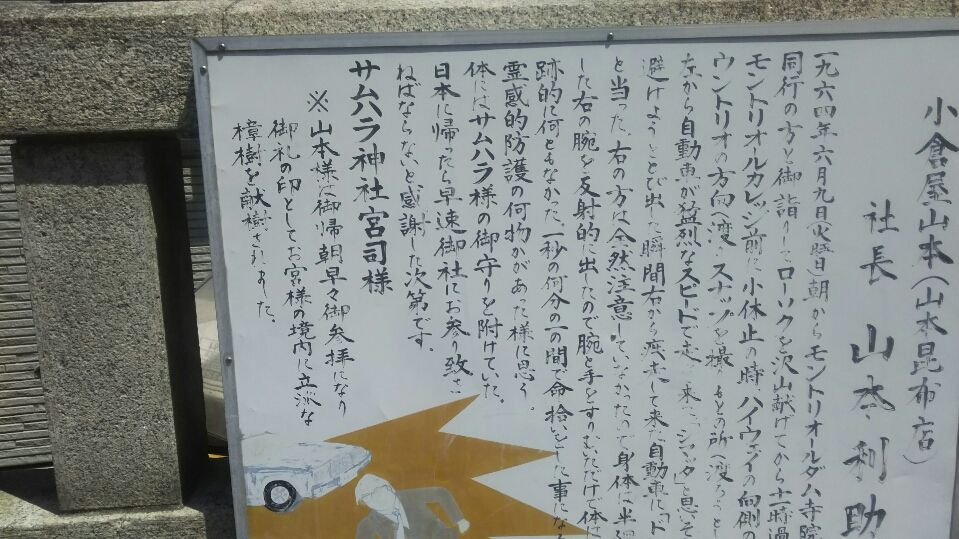 小倉屋山本(山本昆布店)
社長 山本利助
一九六四年六月九日(火曜日)朝からモントリオールダハ寺院
同行の方と御詣りしてローソクを沢山献げてから十一時過
モントリオルカレッジ前に小休止の時ハイウェイの向側の
ウントリオの方向へ渡 スナップを撮 もとの所へ渡ろうとし
左から自動車が猛烈なスピードで走 来た、「シマッタ」と思いそ
避けようととび出した瞬間右から疾走して来た自動車に「ド
と当った、右の方は全然注意していなかったので身体に半廻
した右の腕を反射的に出したので腕と手をすりむいただけで体に
跡的に何ともなかった、一秒の何分の一の間で命拾いをした事になる
霊感的防護の何物かがあった様に思う。
体にはサムハラ様の御守りを附けていた。
日本に帰ったら早速御社にお参り致さ
ねばならないと感謝した次第です。
サムハラ神社宮司様
※山本様は御帰朝早々御参拝になり
御礼の印としてお宮様の境内に立派な
樟樹を献樹されました。